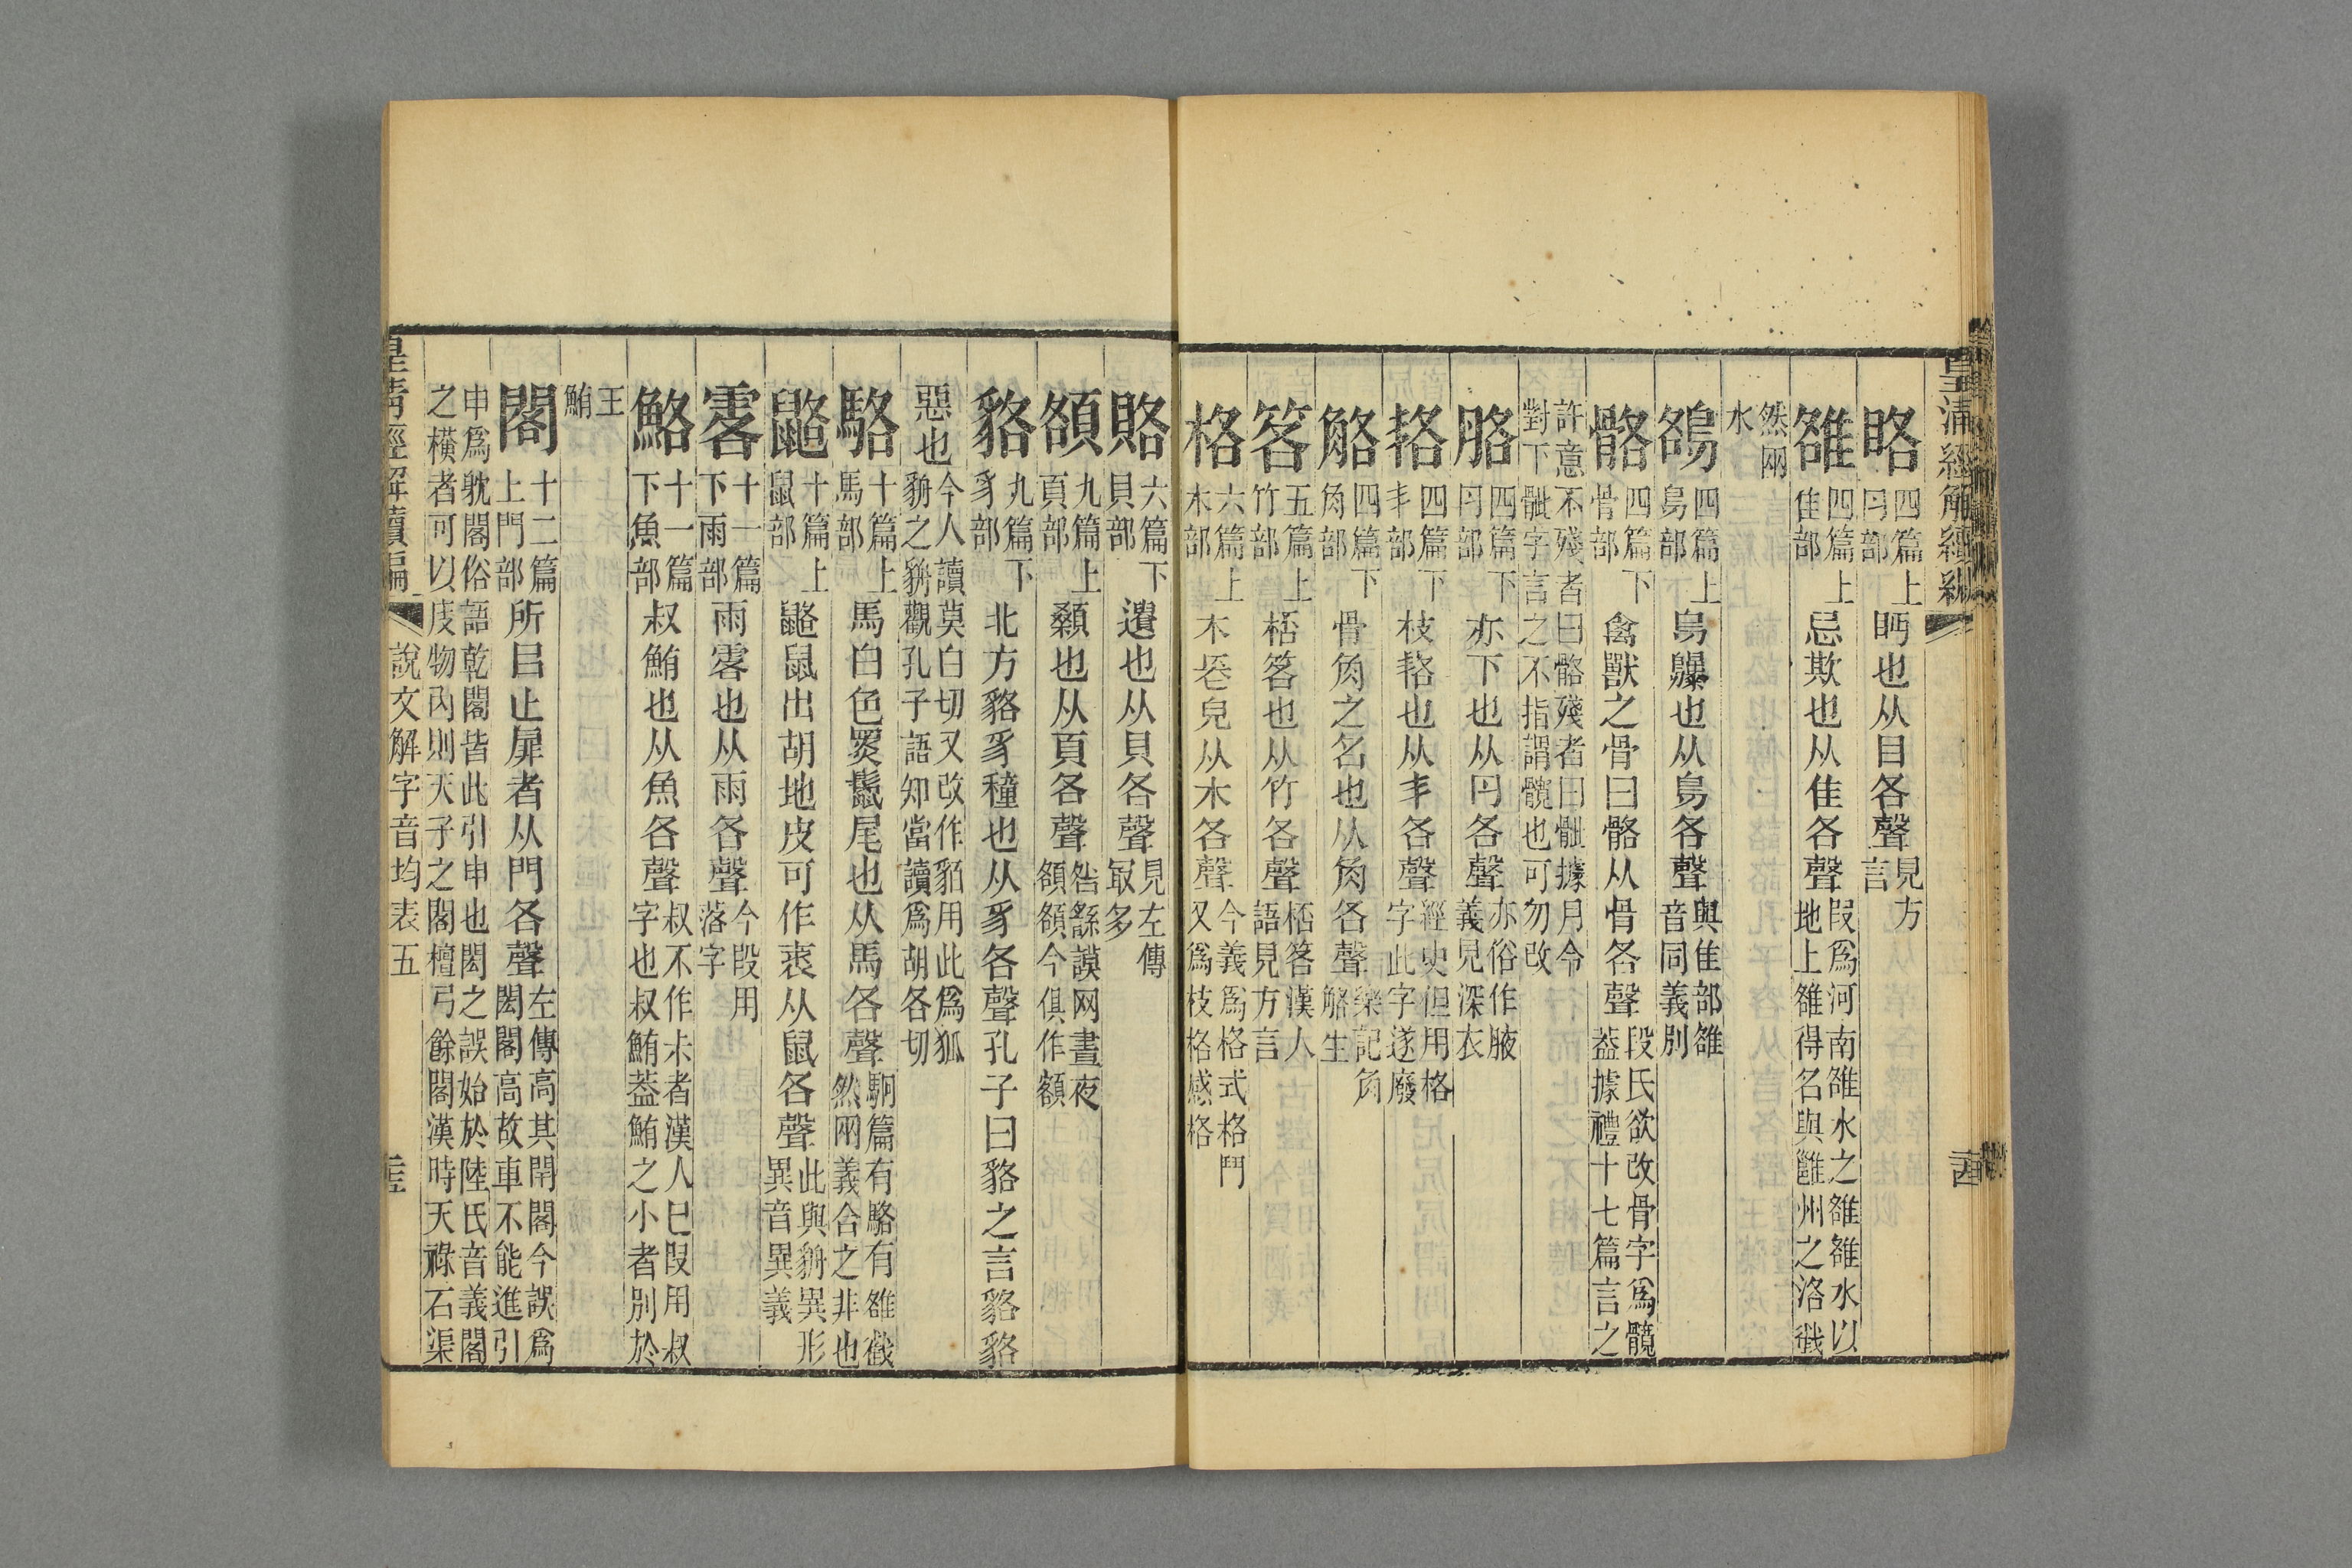 皇清經解續編
略四篇上目部眄也从目各聲見方言
雒四篇上隹部忌欺也从隹各聲叚爲河南雒水之雒雒水以地上雒得名與雝州之洛戬
然兩水
鵅四篇上鳥部鳥鸔也从鳥各聲與隹部雒音同義別
骼四篇下骨部禽獸之骨曰骼从骨各聲段氏欲改骨字爲髖葢據禮十七篇言之
許意不殘者曰骼殘者曰骴據月令對下骴字言之不指謂髖也可勿改
胳四篇下肉部亦下也从肉各聲亦俗作腋義見深衣
挌四篇下丯部枝挌也从丯各聲經史但用格字此字遂廢
觡四篇下角部骨角之名也从角各聲樂記角觡生
笿五篇上竹部桮笿也从竹各聲桮笿漢人語見方言
格六篇上木部木長皃从木各聲今義爲格式格鬥又爲枝格感格
賂六篇下貝部遺也从貝各聲見左傳㝡多
頟九篇上頁部顙也从頁各聲咎繇謨网晝夜頟頟今俱作額
貉九篇下豸部北方貉豸穜也从豸各聲孔子曰貉之言貉貉
惡也今人讀莫白切又改作貊用此爲狐貈之貈觀孔子語知當讀爲胡各切
駱十篇上馬部馬白色黑鬛尾也从馬各聲駉篇有駱有雒戬然兩義合之非也
鼯十篇上鼠部鼯鼠出胡地皮可作裘从鼠各聲此與貈異形異音異義
零十一篇下雨部雨零也从雨各聲今叚用落字
鮥十一篇下魚部叔鮪也从魚各聲叔不作尗者漢人巳叚用叔字也叔鮪葢鮪之小者別於
王鮪
閣十二篇上門部所㠯止扉者从門各聲左傳高其閈閣今誤爲閎閣高故車不能進引
申爲躭閣俗語乾閣皆此引申也閎之誤始於陸氏音義閣之橫者可以庋物內則天子之閣檀弓餘閣漢時天祿石渠
皇清經解續編 說文解字音均表五